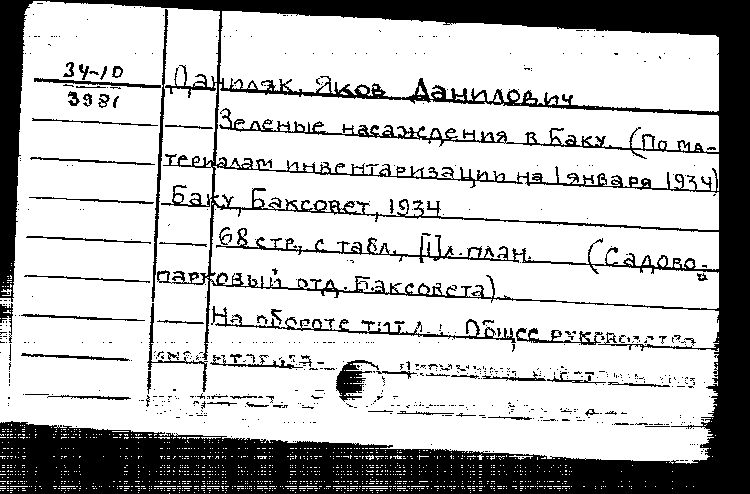 34-10
3981
Даниляк, Яков Данилович
Зеленые насаждения в Баку. (По ма-
териалам инвентаризации на 1 января 1934)
Баку, Баксовет, 1934
68 стр., с табл., [1]л. план. (Садово-
парковый отд. Баксовета).
На обороте тит. л.: Общее руководство